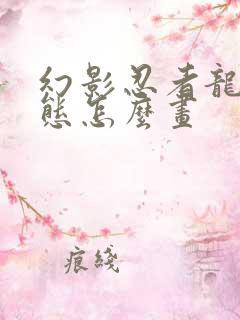 幻影忍者龍
態怎麼畫
痕綫